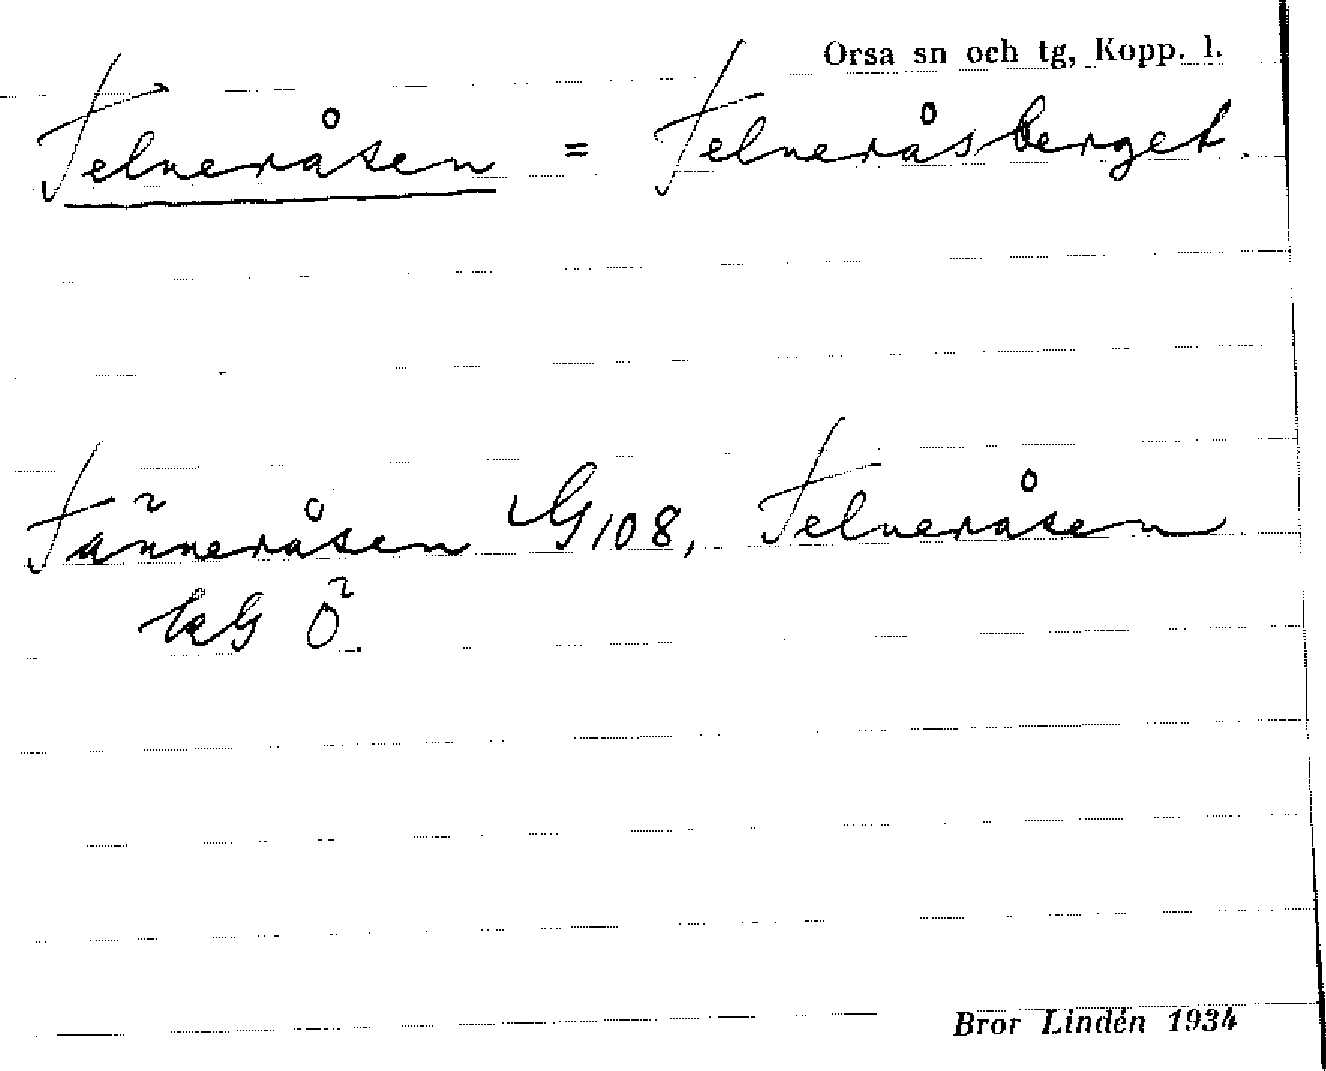 Orsa sn och tg, Kopp. l.
Telneråsen = Telneråsberget.
Tänneråsen G 108, Telneråsen
Ö.
Bror Lindén 1934